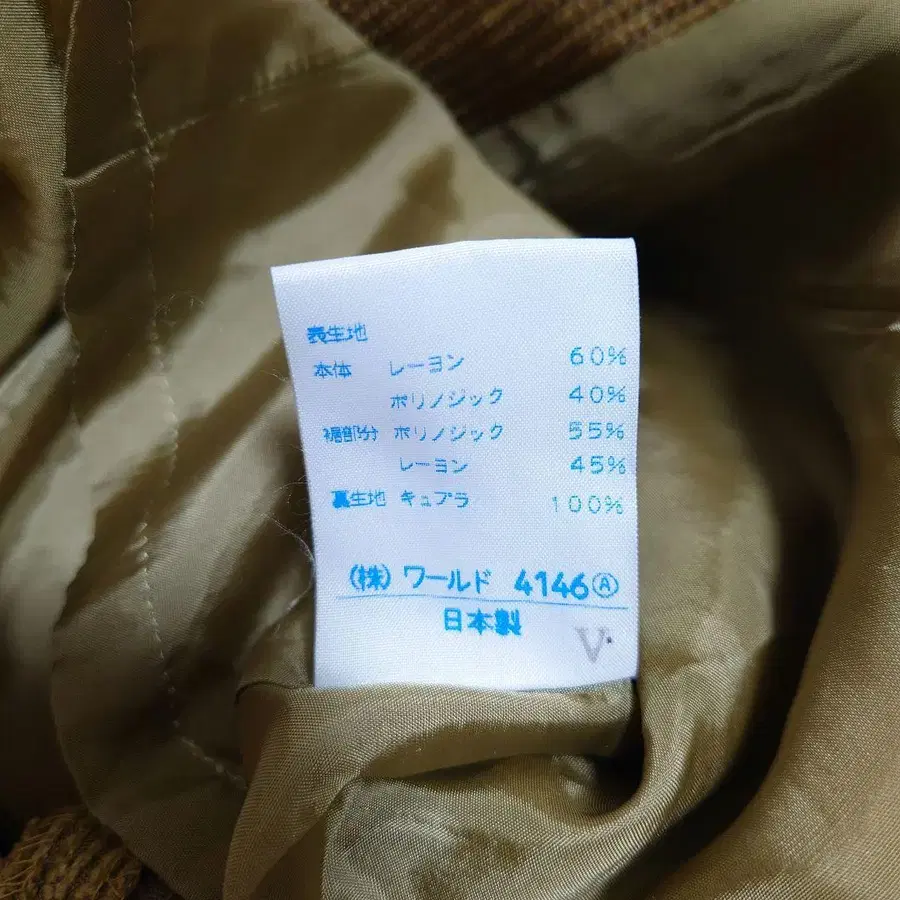 表生地
本体 レーヨン 60%
ポリノジック 40%
裾部分 ポリノジック 55%
レーヨン 45%
裏生地 キュプラ 100%
(株)ワールド 4146Ⓐ
日本製
V.